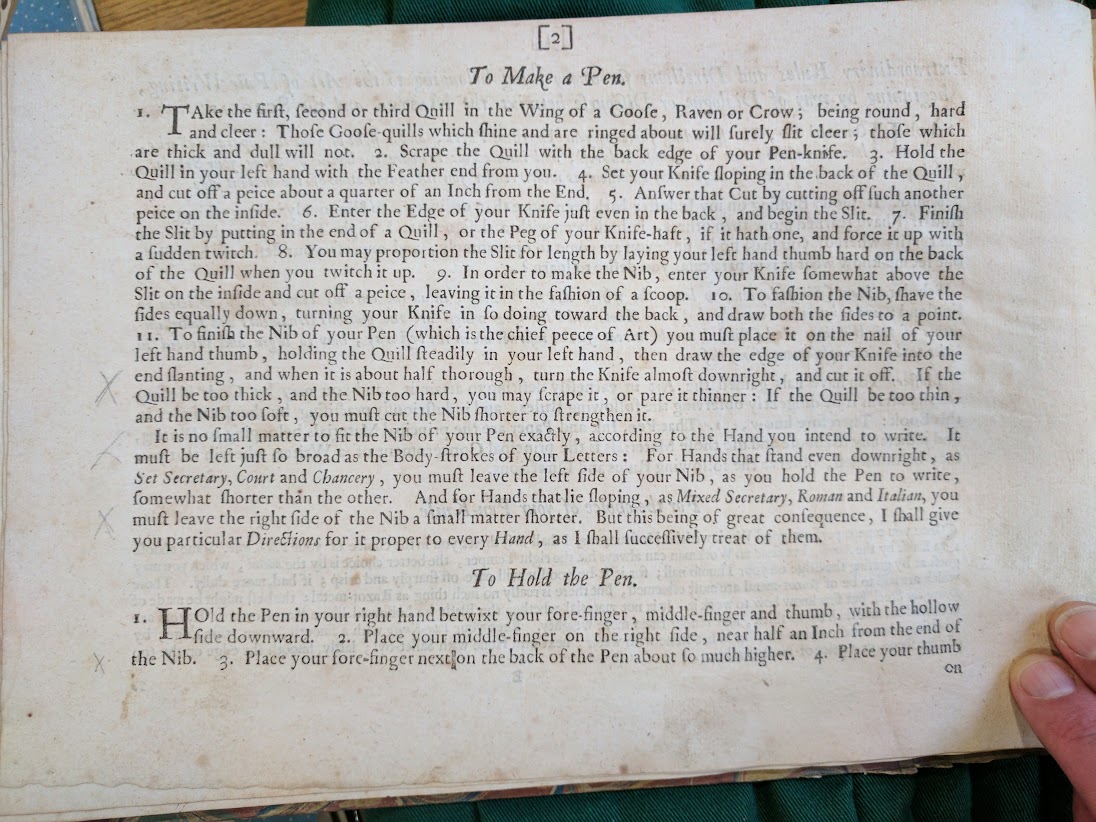 [2]
To Make a Pen.
1. TAke the firſt, ſecond or third Quill in the Wing of a Gooſe, Raven or Crow; being round, hard
and cleer: Thoſe Gooſe-quills which ſhine and are ringed about will ſurely ſlit cleer; thoſe which
are thick and dull will not. 2. Scrape the Quill with the back edge of your Pen-knife. 3. Hold the
Quill in your left hand with the Feather end from you. 4. Set your Knife ſloping in the back of the Quill,
and cut off a peice about a quarter of an Inch from the End. 5. Anſwer that Cut by cutting off ſuch another
peice on the inſide. 6. Enter the Edge of your Knife juſt even in the back, and begin the Slit. 7. Finiſh
the Slit by putting in the end of a Quill, or the Peg of your Knife-haft, if it hath one, and force it up with
a ſudden twitch. 8. You may proportion the Slit for length by laying your left hand thumb hard on the back
of the Quill when you twitch it up. 9. In order to make the Nib, enter your Knife ſomewhat above the
Slit on the inſide and cut off a peice, leaving it in the faſhion of a ſcoop. 10. To faſhion the Nib, ſhave the
ſides equally down, turning your Knife in ſo doing toward the back, and draw both the ſides to a point.
11. To finiſh the Nib of your Pen (which is the chief peece of Art) you muſt place it on the nail of your
left hand thumb, holding the Quill ſteadily in your left hand, then draw the edge of your Knife into the
end ſlanting, and when it is about half thorough, turn the Knife almoſt downright, and cut it off. If the
Quill be too thick, and the Nib too hard, you may ſcrape it, or pare it thinner: If the Quill be too thin,
and the Nib too ſoft, you muſt cut the Nib ſhorter to ſtrengthen it.
It is no ſmall matter to fit the Nib of your Pen exactly, according to the Hand you intend to write. It
muſt be left juſt ſo broad as the Body-ſtrokes of your Letters: For Hands that ſtand even downright, as
Set Secretary, Court and Chancery, you muſt leave the left ſide of your Nib, as you hold the Pen to write,
ſomewhat ſhorter than the other. And for Hands that lie ſloping, as Mixed Secretary, Roman and Italian, you
muſt leave the right ſide of the Nib a ſmall matter ſhorter. But this being of great conſequence, I ſhall give
you particular Directions for it proper to every Hand, as I ſhall ſucceſſively treat of them.
To Hold the Pen.
1. HOld the Pen in your right hand betwixt your fore-finger, middle-finger and thumb, with the hollow
ſide downward. 2. Place your middle-finger on the right ſide, near half an Inch from the end of
the Nib. 3. Place your fore-finger next on the back of the Pen about ſo much higher. 4. Place your thumb
on